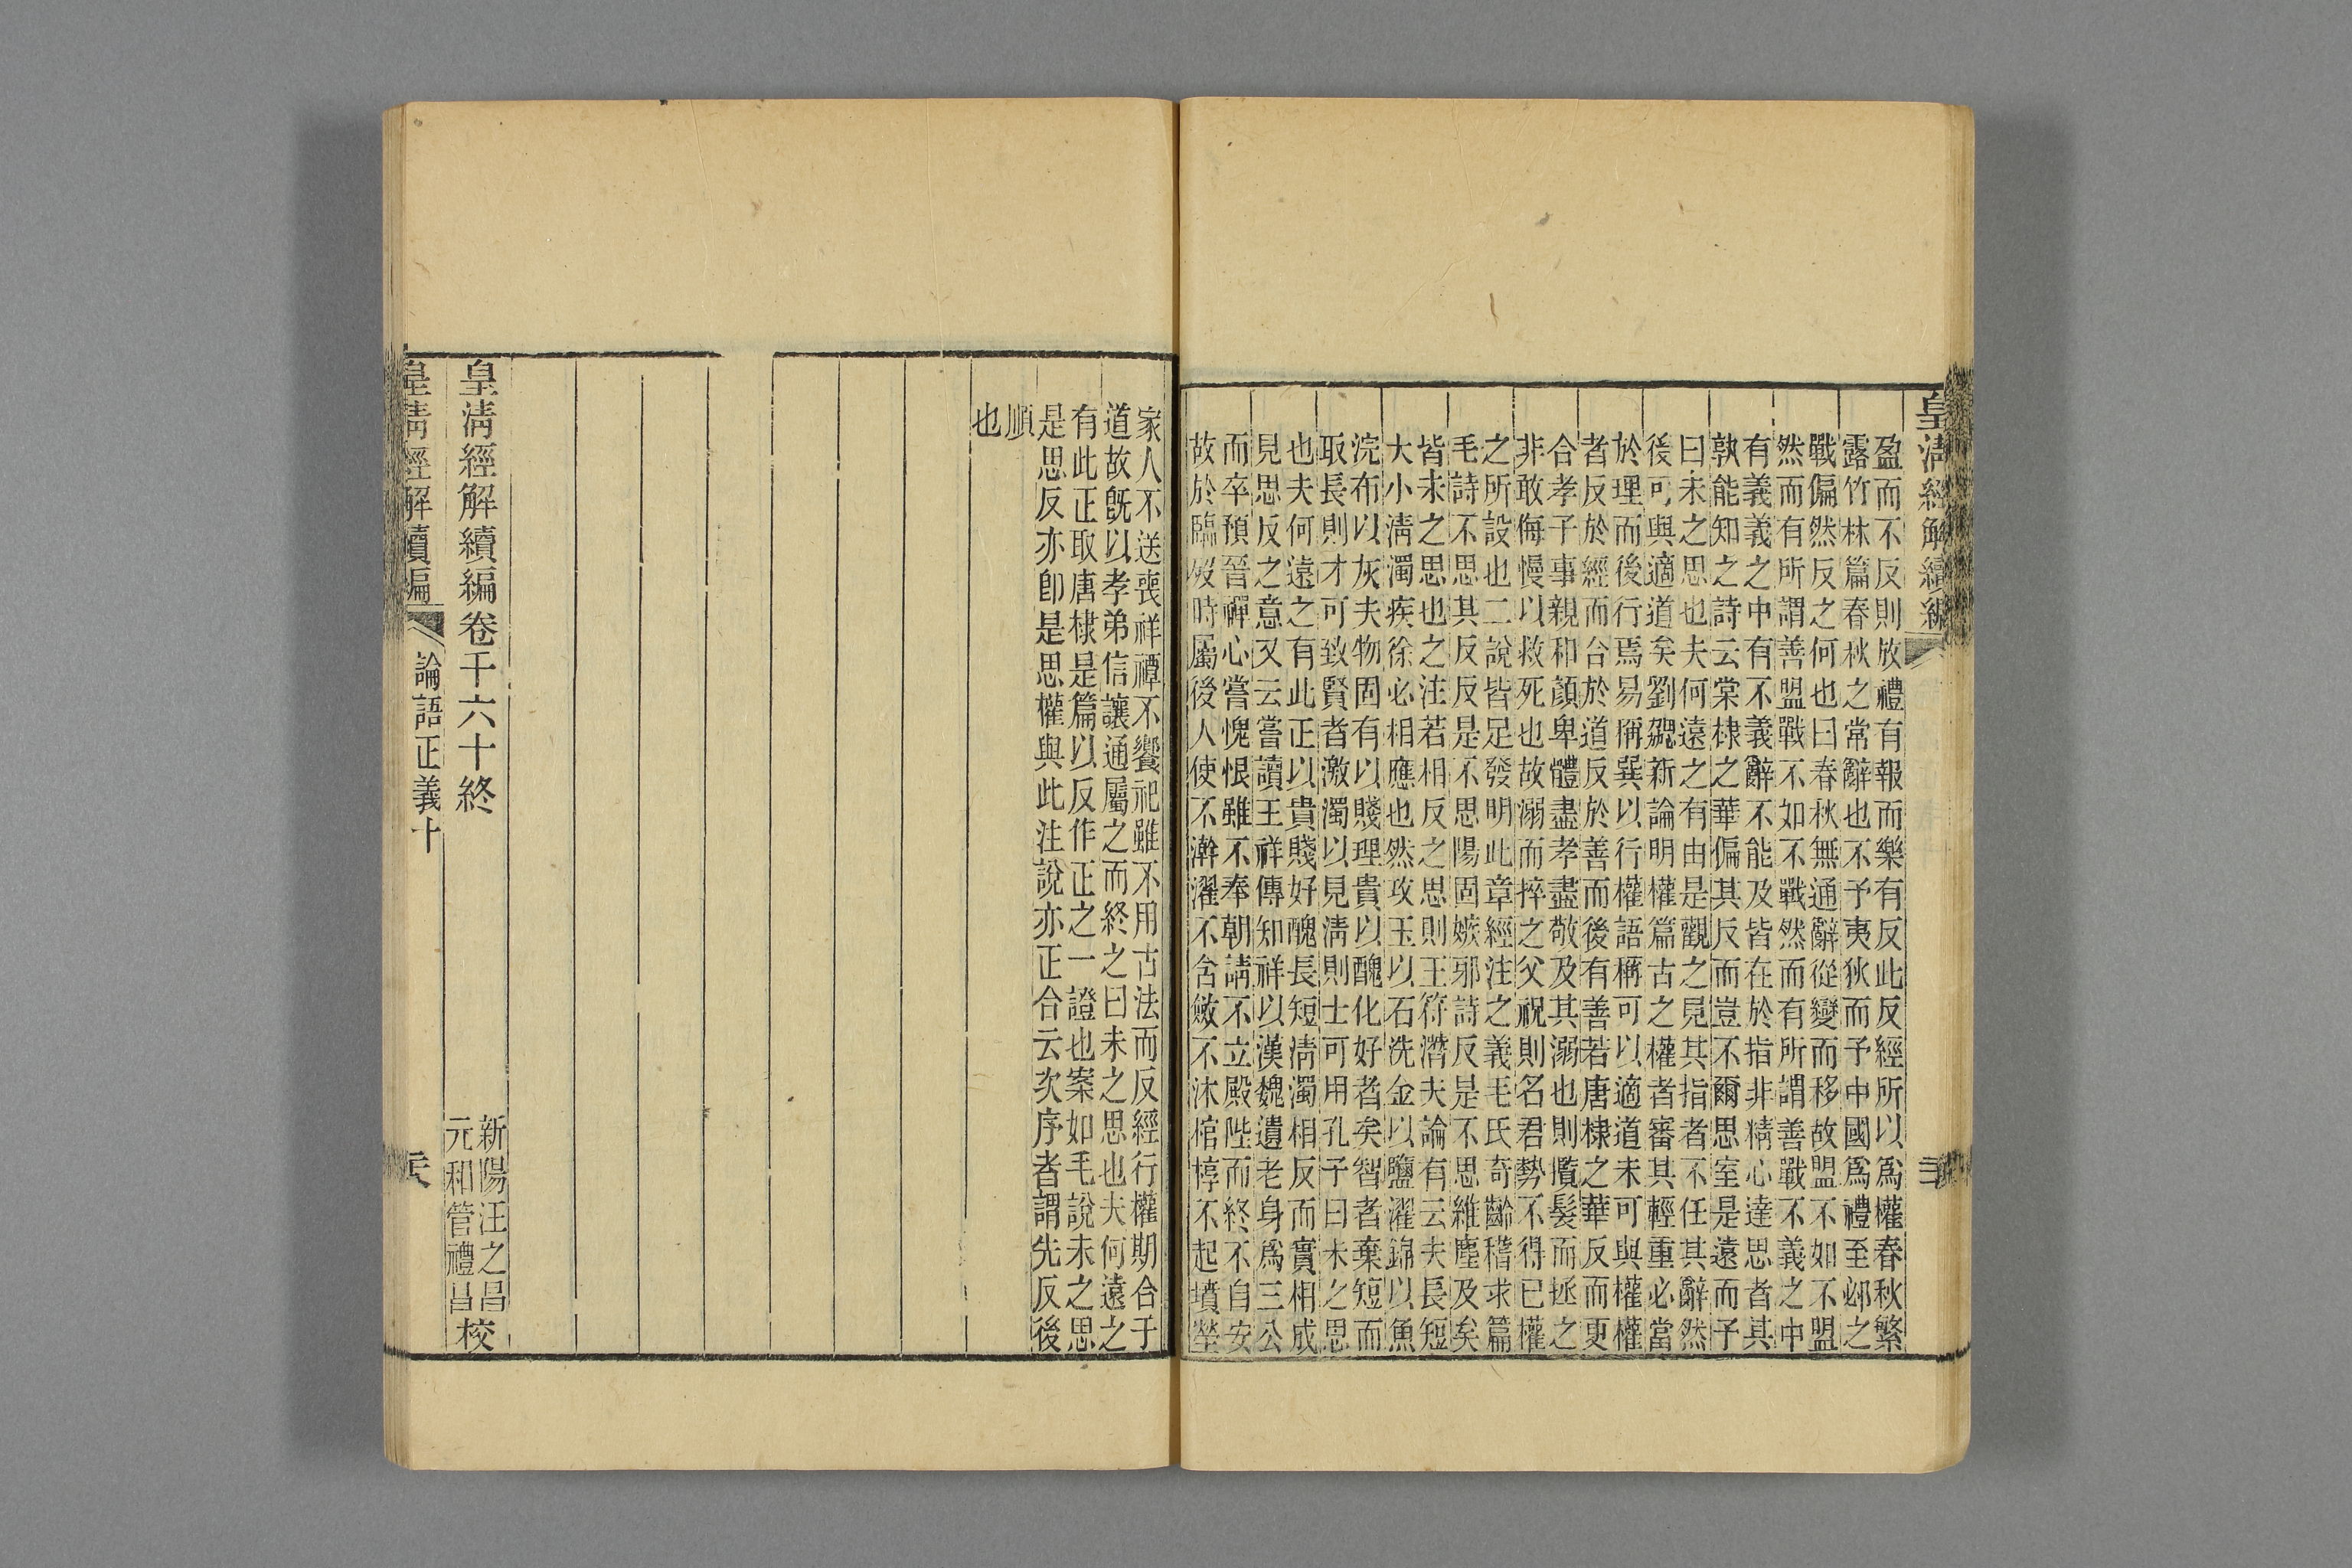 皇清經解續編
盈而不反則放禮有報而樂有反此反經所以爲權春秋繁
露竹林篇春秋之常辭也不予夷狄而予中國爲禮至邲之
戰偏然反之何也曰春秋無通辭從變而移故盟不如不盟
然而有所謂善盟戰不如不戰然而有所謂善戰不義之中
有義義之中有不義辭不能及皆在於指非精心達思者其
孰能知之詩云棠棣之華偏其反而豈不爾思室是遠而子
曰未之思也夫何遠之有由是觀之見其指者不任其辭然
後可與適道矣劉勰新論明權篇古之權者審其輕重必當
於理而後行焉易稱巽以行權語稱可以適道未可與權權
者反於經而合於道反於善而後有善若唐棣之華反而更
合孝子事親和顏卑體盡孝盡敬及其溺也則攬髮而拯之
非敢侮慢以救死也故溺而捽之父祝則名君勢不得已權
之所設也二說皆足發明此章經注之義毛氏奇齡稽求篇
毛詩不思其反反是不思陽固嫉邪詩反是不思維塵及矣
皆未之思也之注若相反之思則王符濳夫論有云夫長短
大小淸濁疾徐必相應也然攻玉以石洗金以鹽濯錦以魚
浣布以灰夫物固有以賤理貴以醜化好者矣智者棄短而
取長則才可致賢者激濁以見淸則士可用孔子曰未之思
也夫何遠之有此正以貴賤好醜長短淸濁相反而實相成
見思反之意又云嘗讀王祥傳知祥以漢魏遺老身爲三公
而卒預晉禪心嘗愧恨雖不奉朝請不立殿陛而終不自安
故於臨歿時屬後人使不澣濯不含斂不沐棺椁不起墳塋
家人不送喪祥禫不饗祀雖不用古法而反經行權期合于
道故旣以孝弟信讓通屬之而終之曰未之思也夫何遠之
有此正取唐棣是篇以反作正之一證也案如毛說未之思
是思反亦卽是思權與此注說亦正合云次序者謂先反後
順
也
皇清經解續編卷千六十終
新陽汪之昌
元和管禮昌校
皇淸經解續編
論語正義十